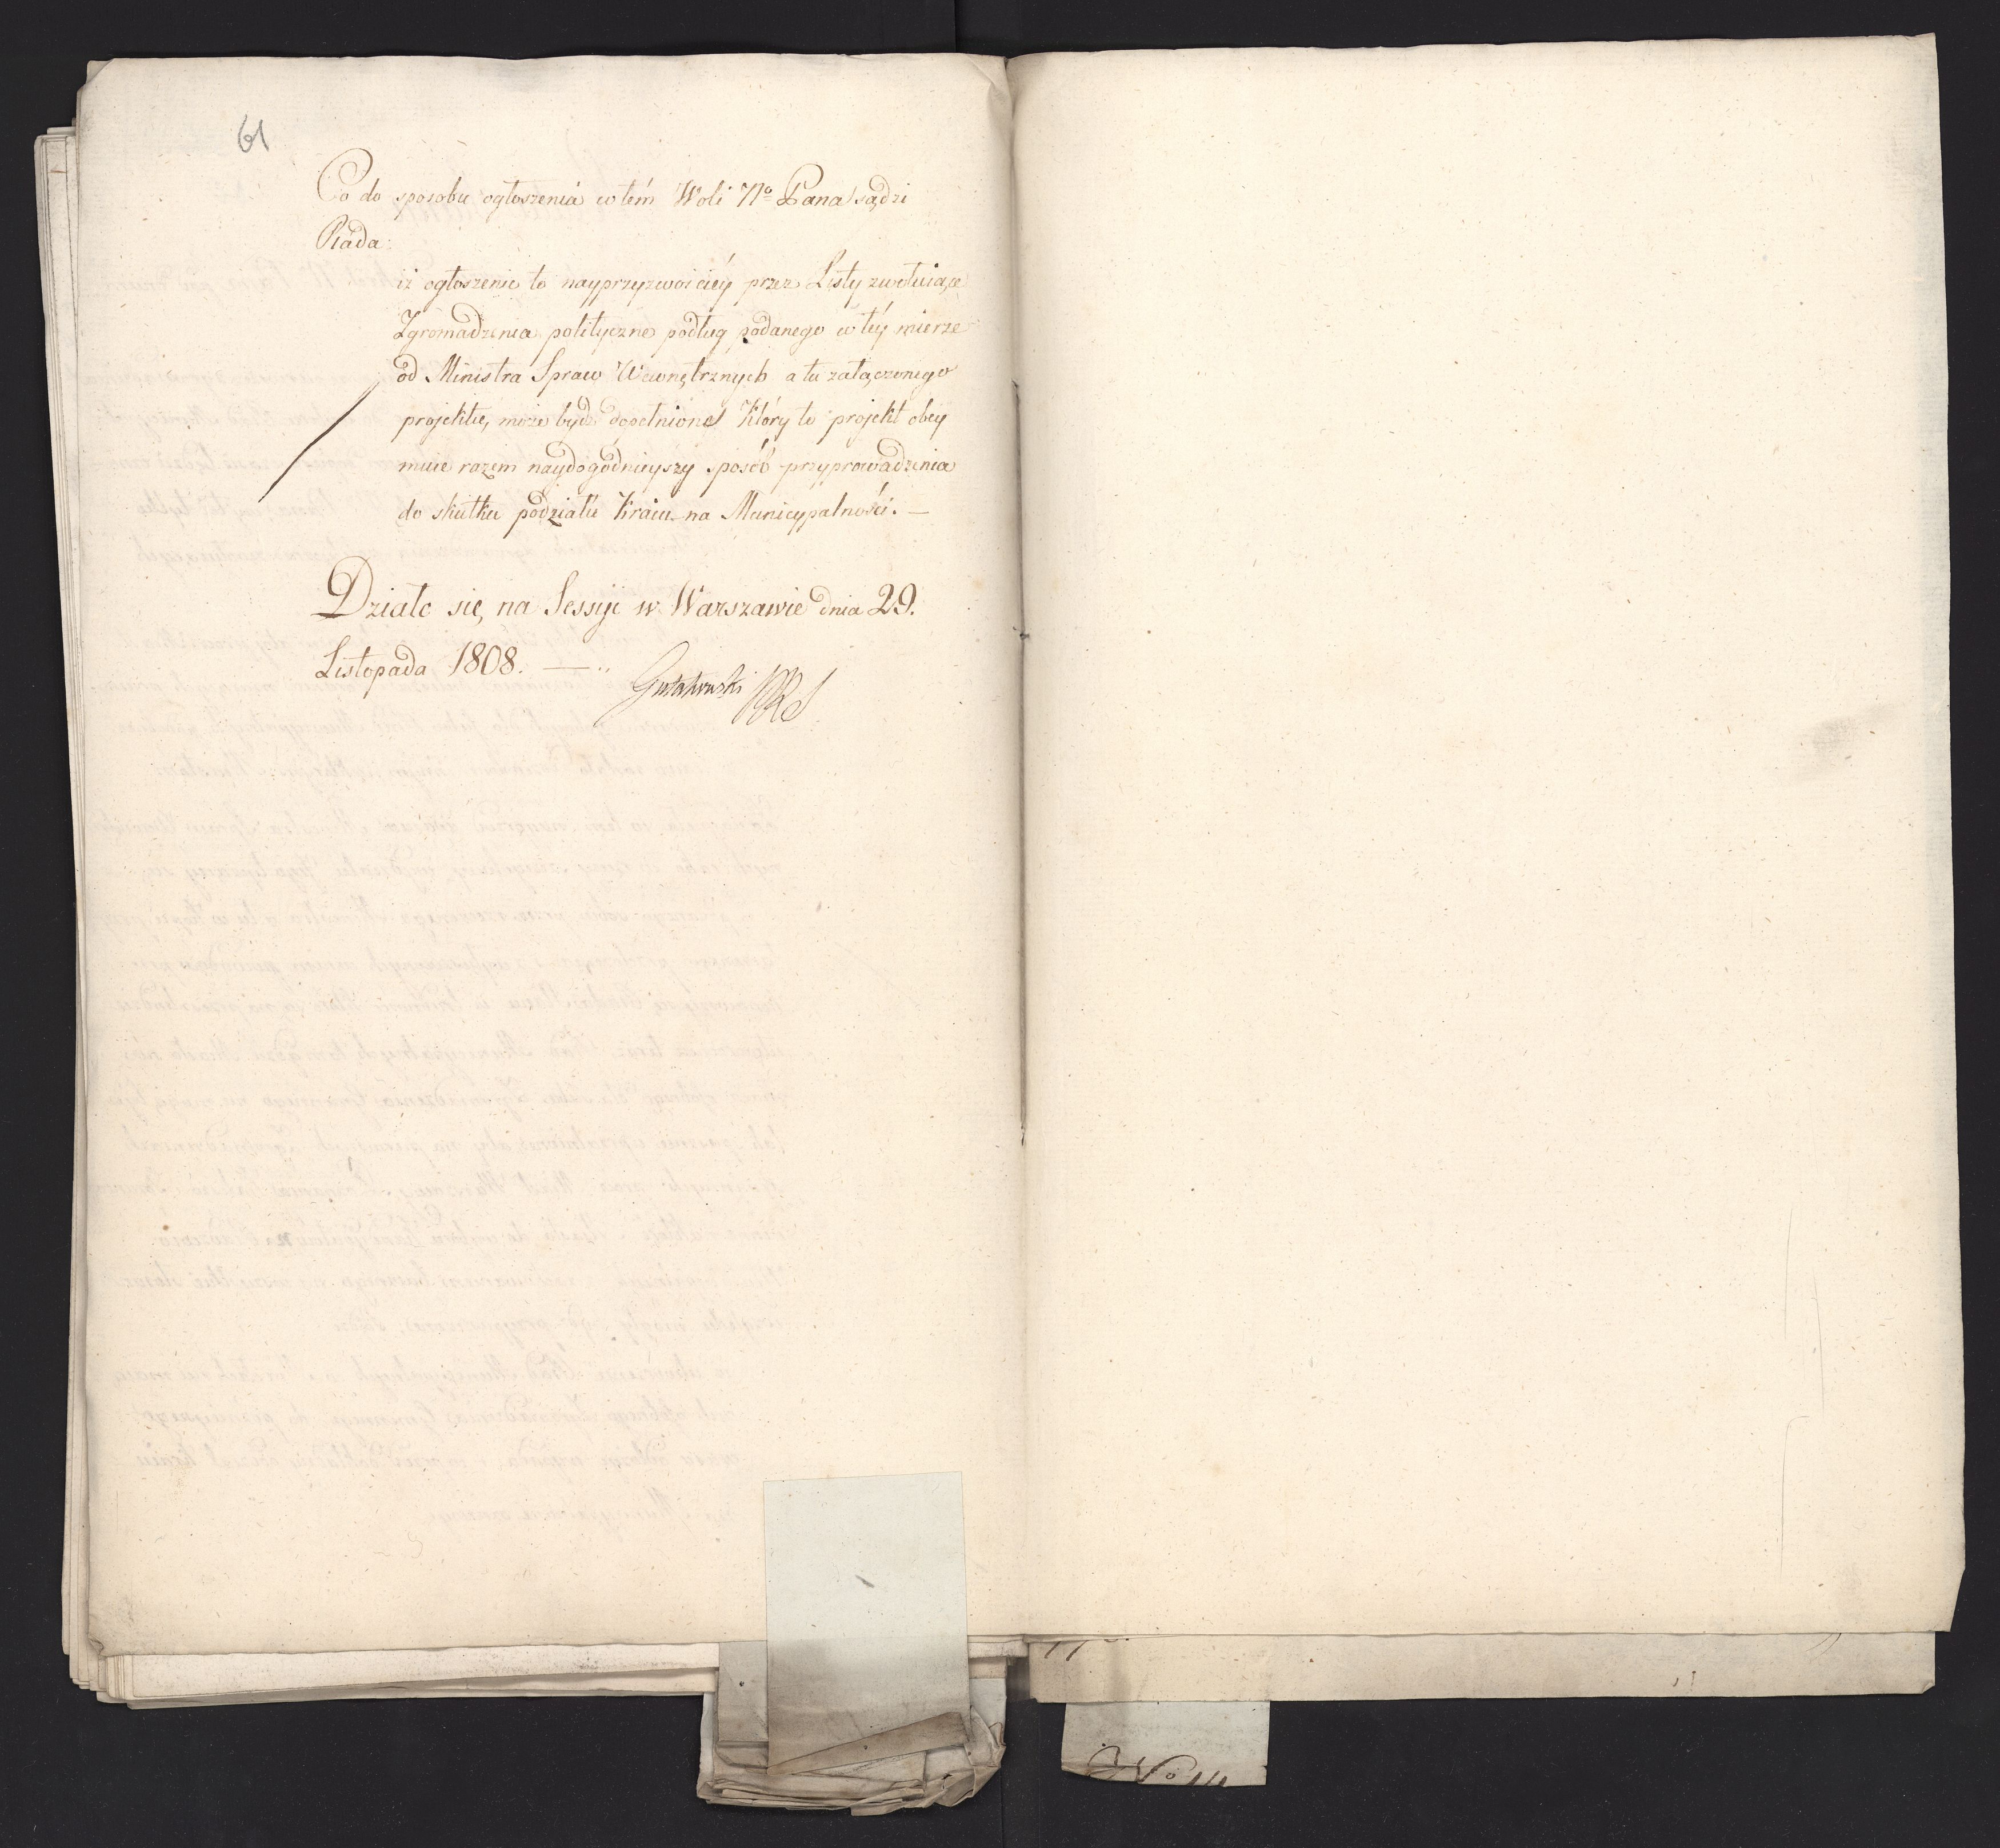 61
Co do sposobu ogłoszenia w tém Woli No Pana sądzi
Rada:
iż ogłoszenie to nayprzyzwoiciéy przez Listy zwołuiące
Zgromadzenia polityczne podług podanego w téy mierze
od Ministra Spraw Wewnętrznych a tu załączonego
projektu, może bydź dopełnione Który to projekt obey
muie razem naydogodnieyszy sposób przyprowadzenia
do skutku podziału Kraiu na Municypalności. —
Działo się na Sessyi w Warszawie dnia 29.
Listopada 1808. —
Gutakowski PRS
No 14